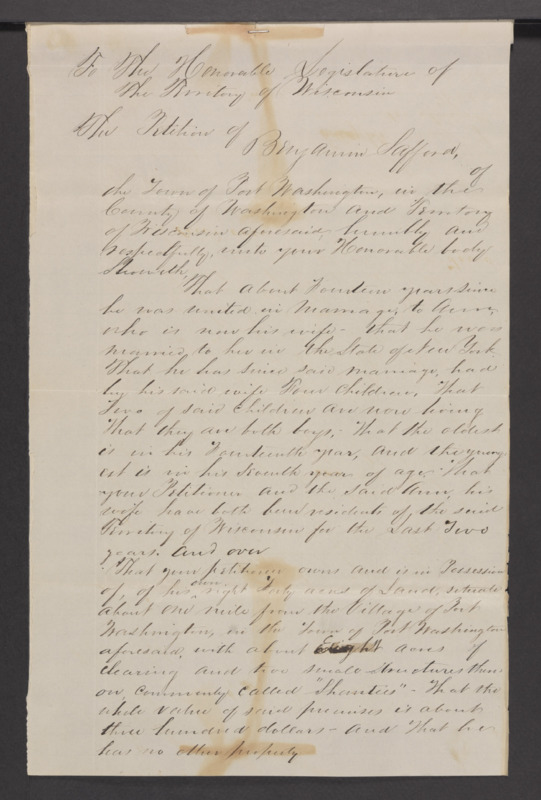 To The Honorable Legislature of
The Territory of Wisconsin
The Petition of
Benjamin Safford,
of
the Town of Port Washington, in the
County of Washington and Territory
of Wisconsin aforesaid, humbly and
respectfully, unto your Honorable body
Sheweth,
That about Fourteen years since
he was united in marriage, to Ann,
who is now his wife - that he was
married to her in the State of New York.
That he has since said marriage, had
by his said wife Four Children, That
Two of said children are now living
That they are both boys, - That the oldest
is in his Fourteenth year, and the young-
est is in his Seventh year of age, - That
your Petitioner and the said Ann, his
wife have both been residents of the said
Territory of Wisconsin for the Last Two
years. and over
That your petitioner owns and is in Possession
of, of his own right Forty acres of Land, situate
about one mile from the Village of Port
Washington, in the Town of Port Washington
aforesaid, with about Eight acres of
clearing and two small structures there-
on, commonly called "Shanties" - That the
whole value of said premises is about
three hundred dollars - and That he
has no other property